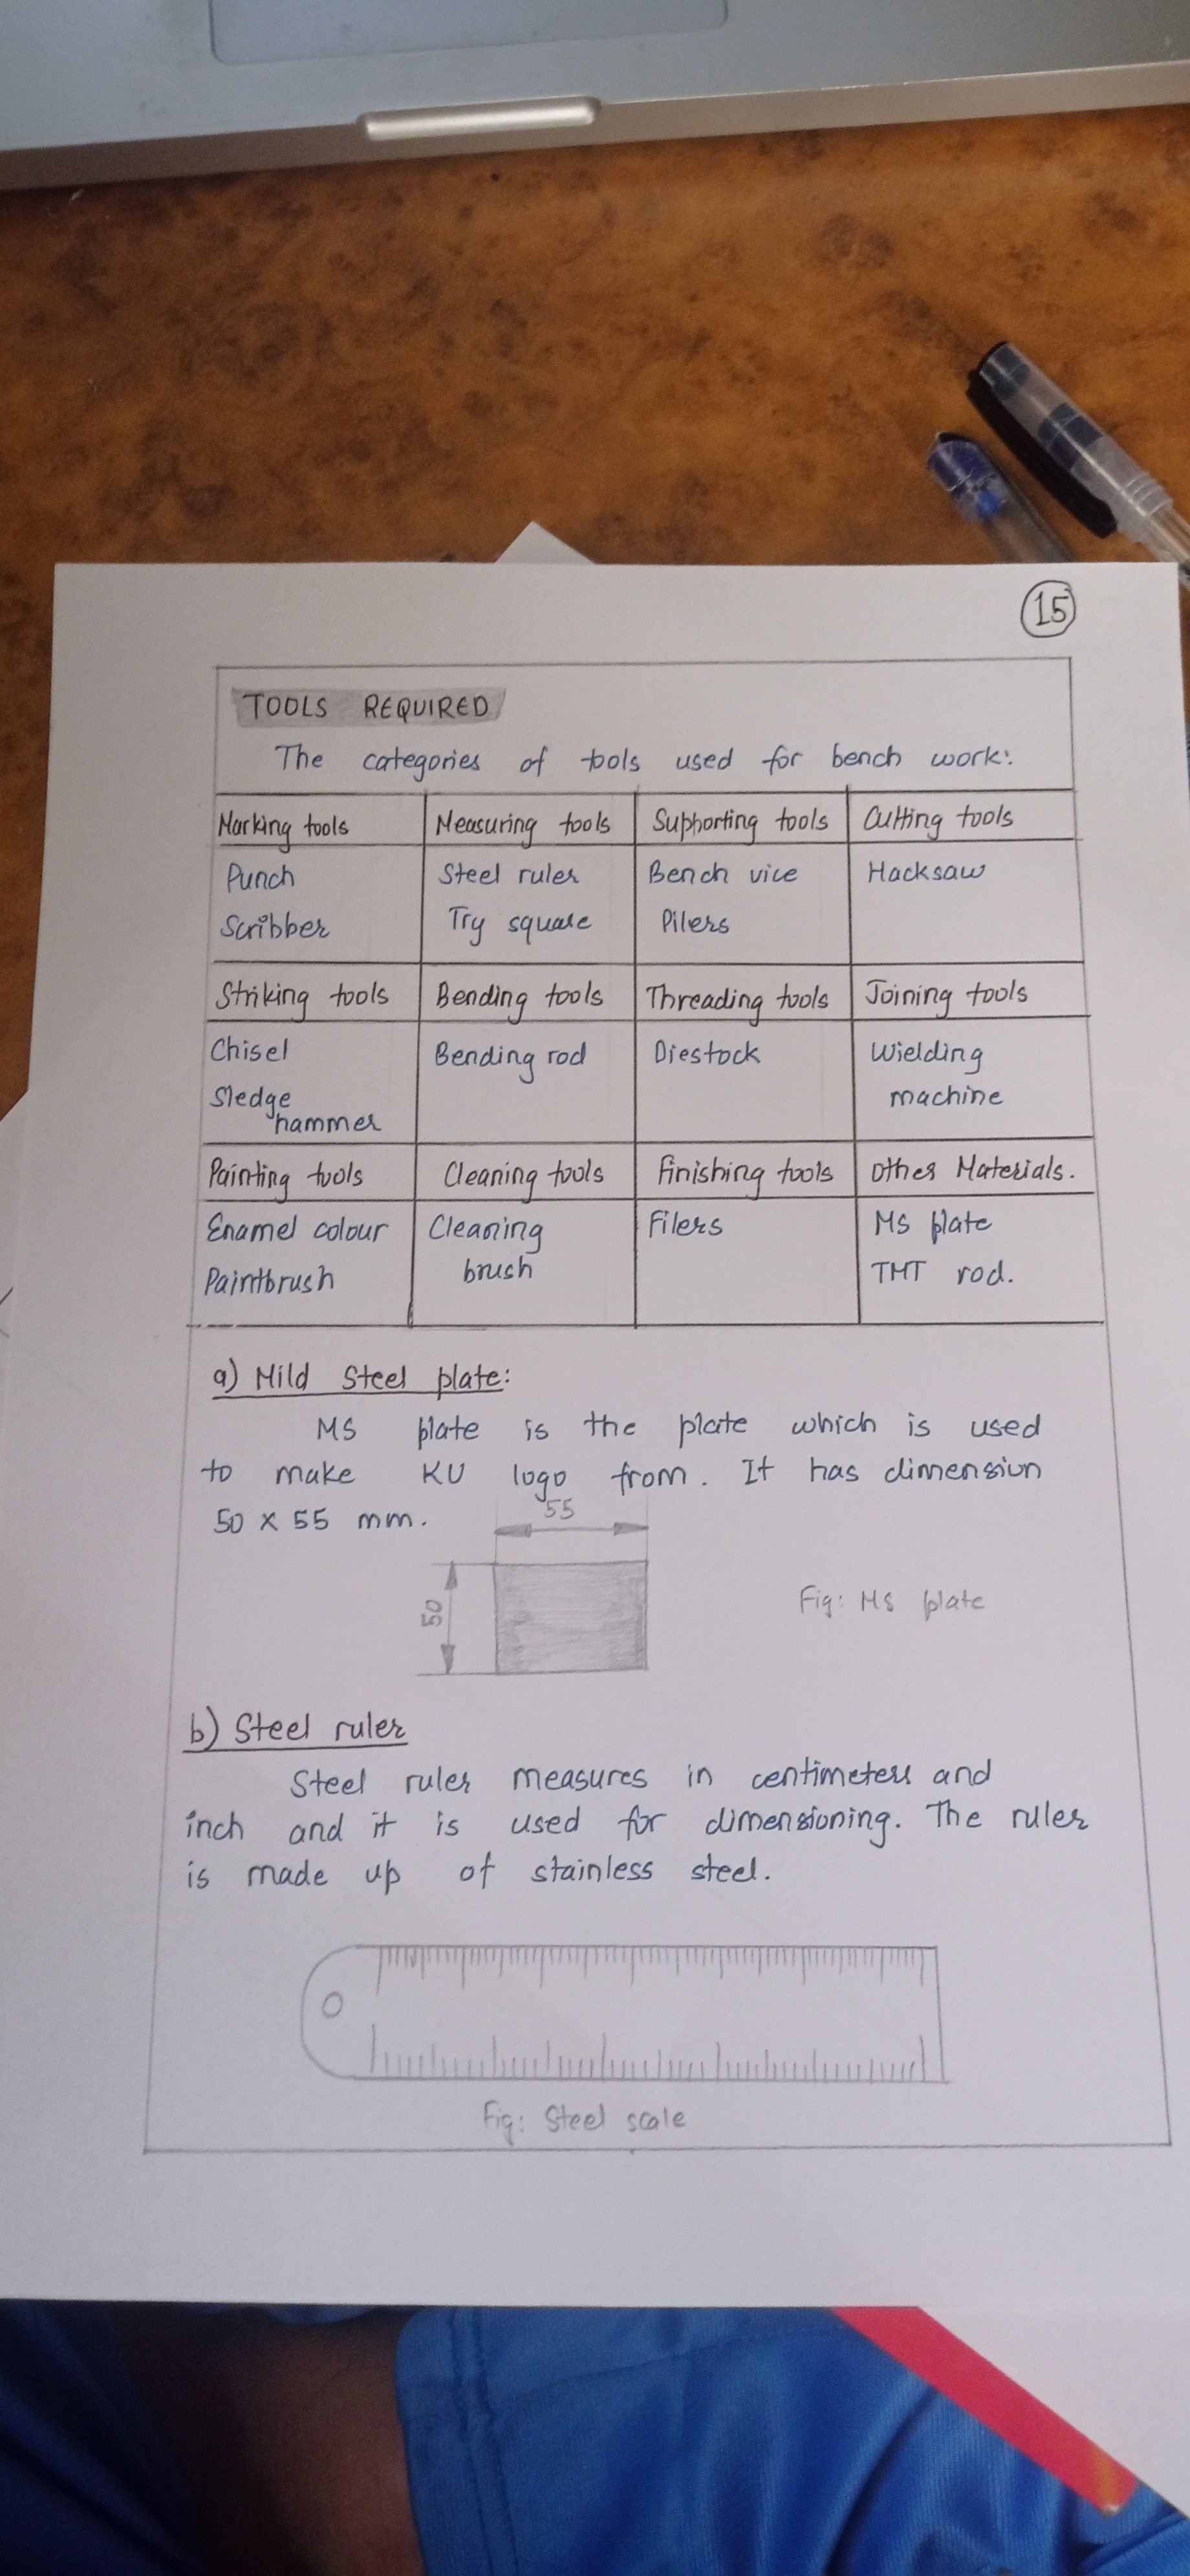 15
TOOLS REQUIRED
The categories of tools used for bench work:
Marking tools Measuring tools Supporting tools Cutting tools
Punch Steel ruler Bench vice Hacksaw
Scribber Try square Pilers
Striking tools Bending tools Threading tools Joining tools
Chisel Bending rod Diestock Wielding
Sledge machine
hammer
Painting tools Cleaning tools Finishing tools Other Materials.
Enamel colour Cleaning Filers MS plate
Paintbrush brush TMT rod.
a) Mild Steel plate:
MS plate is the plate which is used
to make KU logo from. It has dimension
50 x 55 mm.
55
50
Fig: MS plate
b) Steel ruler
Steel ruler measures in centimeters and
inch and it is used for dimensioning. The ruler
is made up of stainless steel.
Fig: Steel scale